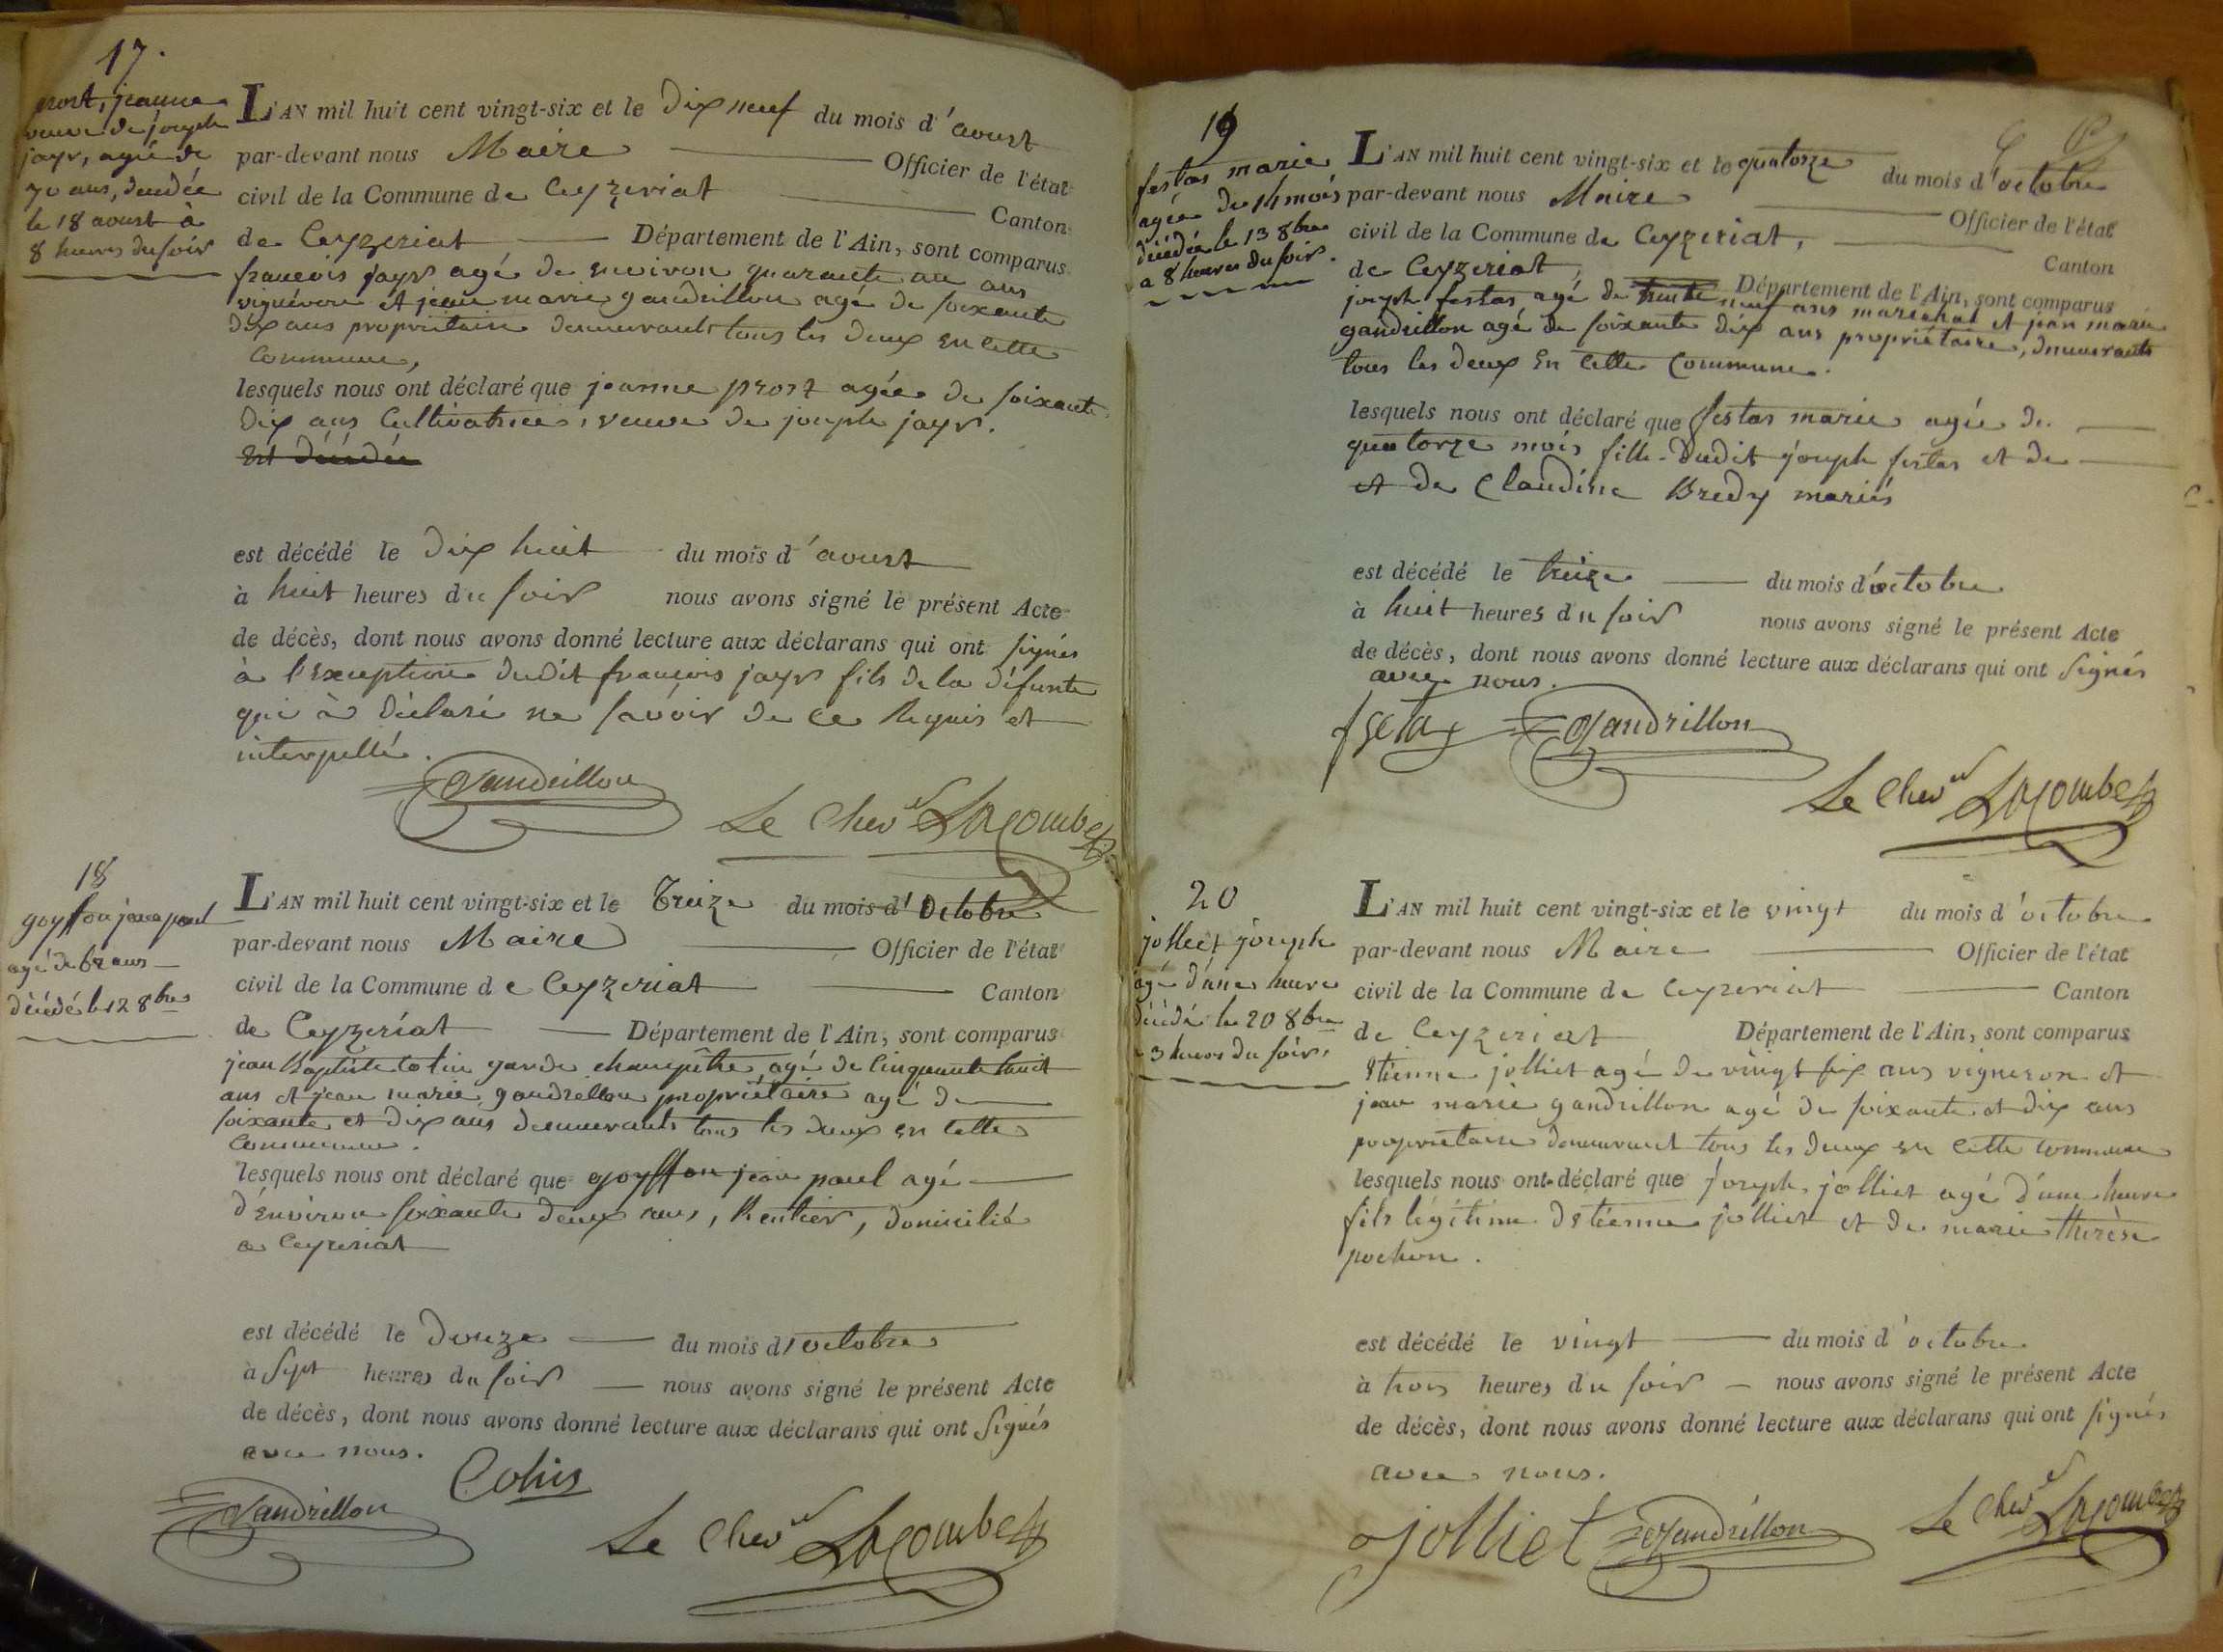 17.
prost, jeanne
veuve de joseph
jayr, agée de
70 ans, décédée
le 18 aoust à
8 heures du soir
L'AN mil huit cent vingt-six et le dix neuf du mois d'aoust
par-devant nous Maire Officier de l'état
civil de la Commune de Ceyzeriat Canton
de Ceyzeriat Département de l'Ain, sont comparus
francois jayr agé de environ quarante un ans
vigneron et jean marie gandrillon agé de soixante
dix ans propriétaire demeurants tous les deux en cette
commune,
lesquels nous ont déclaré que jeanne prost agée de soixante
dix ans Cultivatrice, veuve de joseph jayr.
Est décédée
est décédé le dix huit du mois d'aoust
à huit heures du soir nous avons signé le présent Acte
de décès, dont nous avons donné lecture aux déclarans qui ont signés
à l'exception dudit françois jayr fils de la défunte
qui à déclaré ne savoir de ce Requis et
interpellé.
Gandrillon
Le Chev Lacombe
18
goyffon jean paul
agé de 62 ans
décédé le 12 8bre
L'AN mil huit cent vingt-six et le Treize du mois d'Octobre
par-devant nous Maire Officier de l'état
civil de la Commune de Ceyzeriat Canton
de Ceyzeriat Département de l'Ain, sont comparus
jean Baptiste Colin garde champêtre agé de Cinquante huit
ans et jean marie gandrillon propriétaire agé de
soixante et dix ans demeurants tous les deux en cette
Commune.
lesquels nous ont déclaré que goyffon jean paul agé
d'Environ soixante deux ans, Rentier, domicilié
a Ceyzeriat
est décédé le douze du mois d'octobre
à sept heures du soir nous avons signé le présent Acte
de décès, dont nous avons donné lecture aux déclarans qui ont signés
avec nous.
Colin
Gandrillon
Le Chev Lacombe
19
festas marie
agée de 14 mois
décédée le 13 8bre
a 8 heures du soir.
L'AN mil huit cent vingt-six et le quatorze du mois d'octobre
par-devant nous Maire Officier de l'état
civil de la Commune de Ceyzeriat, Canton
de Ceyzeriat, Département de l'Ain, sont comparus
joseph festas agé de trente neuf ans marechal et jean marie
gandrillon agé de soixante dix ans propriétaire, demeurants
tous les deux En Cette Commune.
lesquels nous ont déclaré que festas marie agée de
quatorze mois fille dudit joseph festas et de
et de Claudine Bredy mariés
est décédé le treize du mois d'octobre
à huit heures du soir nous avons signé le présent Acte
de décès, dont nous avons donné lecture aux déclarans qui ont signés
avec nous.
Gandrillon
Le Chev Lacombe
20
jolliet joseph
agé d'une heure
décédé le 20 8bre
a 3 heures du soir.
L'AN mil huit cent vingt-six et le vingt du mois d'octobre
par-devant nous Maire Officier de l'état
civil de la Commune de Ceyzeriat Canton
de Ceyzeriat Département de l'Ain, sont comparus
Etienne jolliet agé de vingt six ans vigneron et
jean marie gandrillon agé de soixante et dix ans
propriétaire demeurant tous les deux en cette commune
lesquels nous ont déclaré que joseph jolliet agé d'une heure
fils légitime d'Etienne jolliet et de marie therèse
pochon.
est décédé le vingt du mois d'octobre
à trois heures du soir nous avons signé le présent Acte
de décès, dont nous avons donné lecture aux déclarans qui ont signés
avec nous.
jolliet Gandrillon Le Chev Lacombe